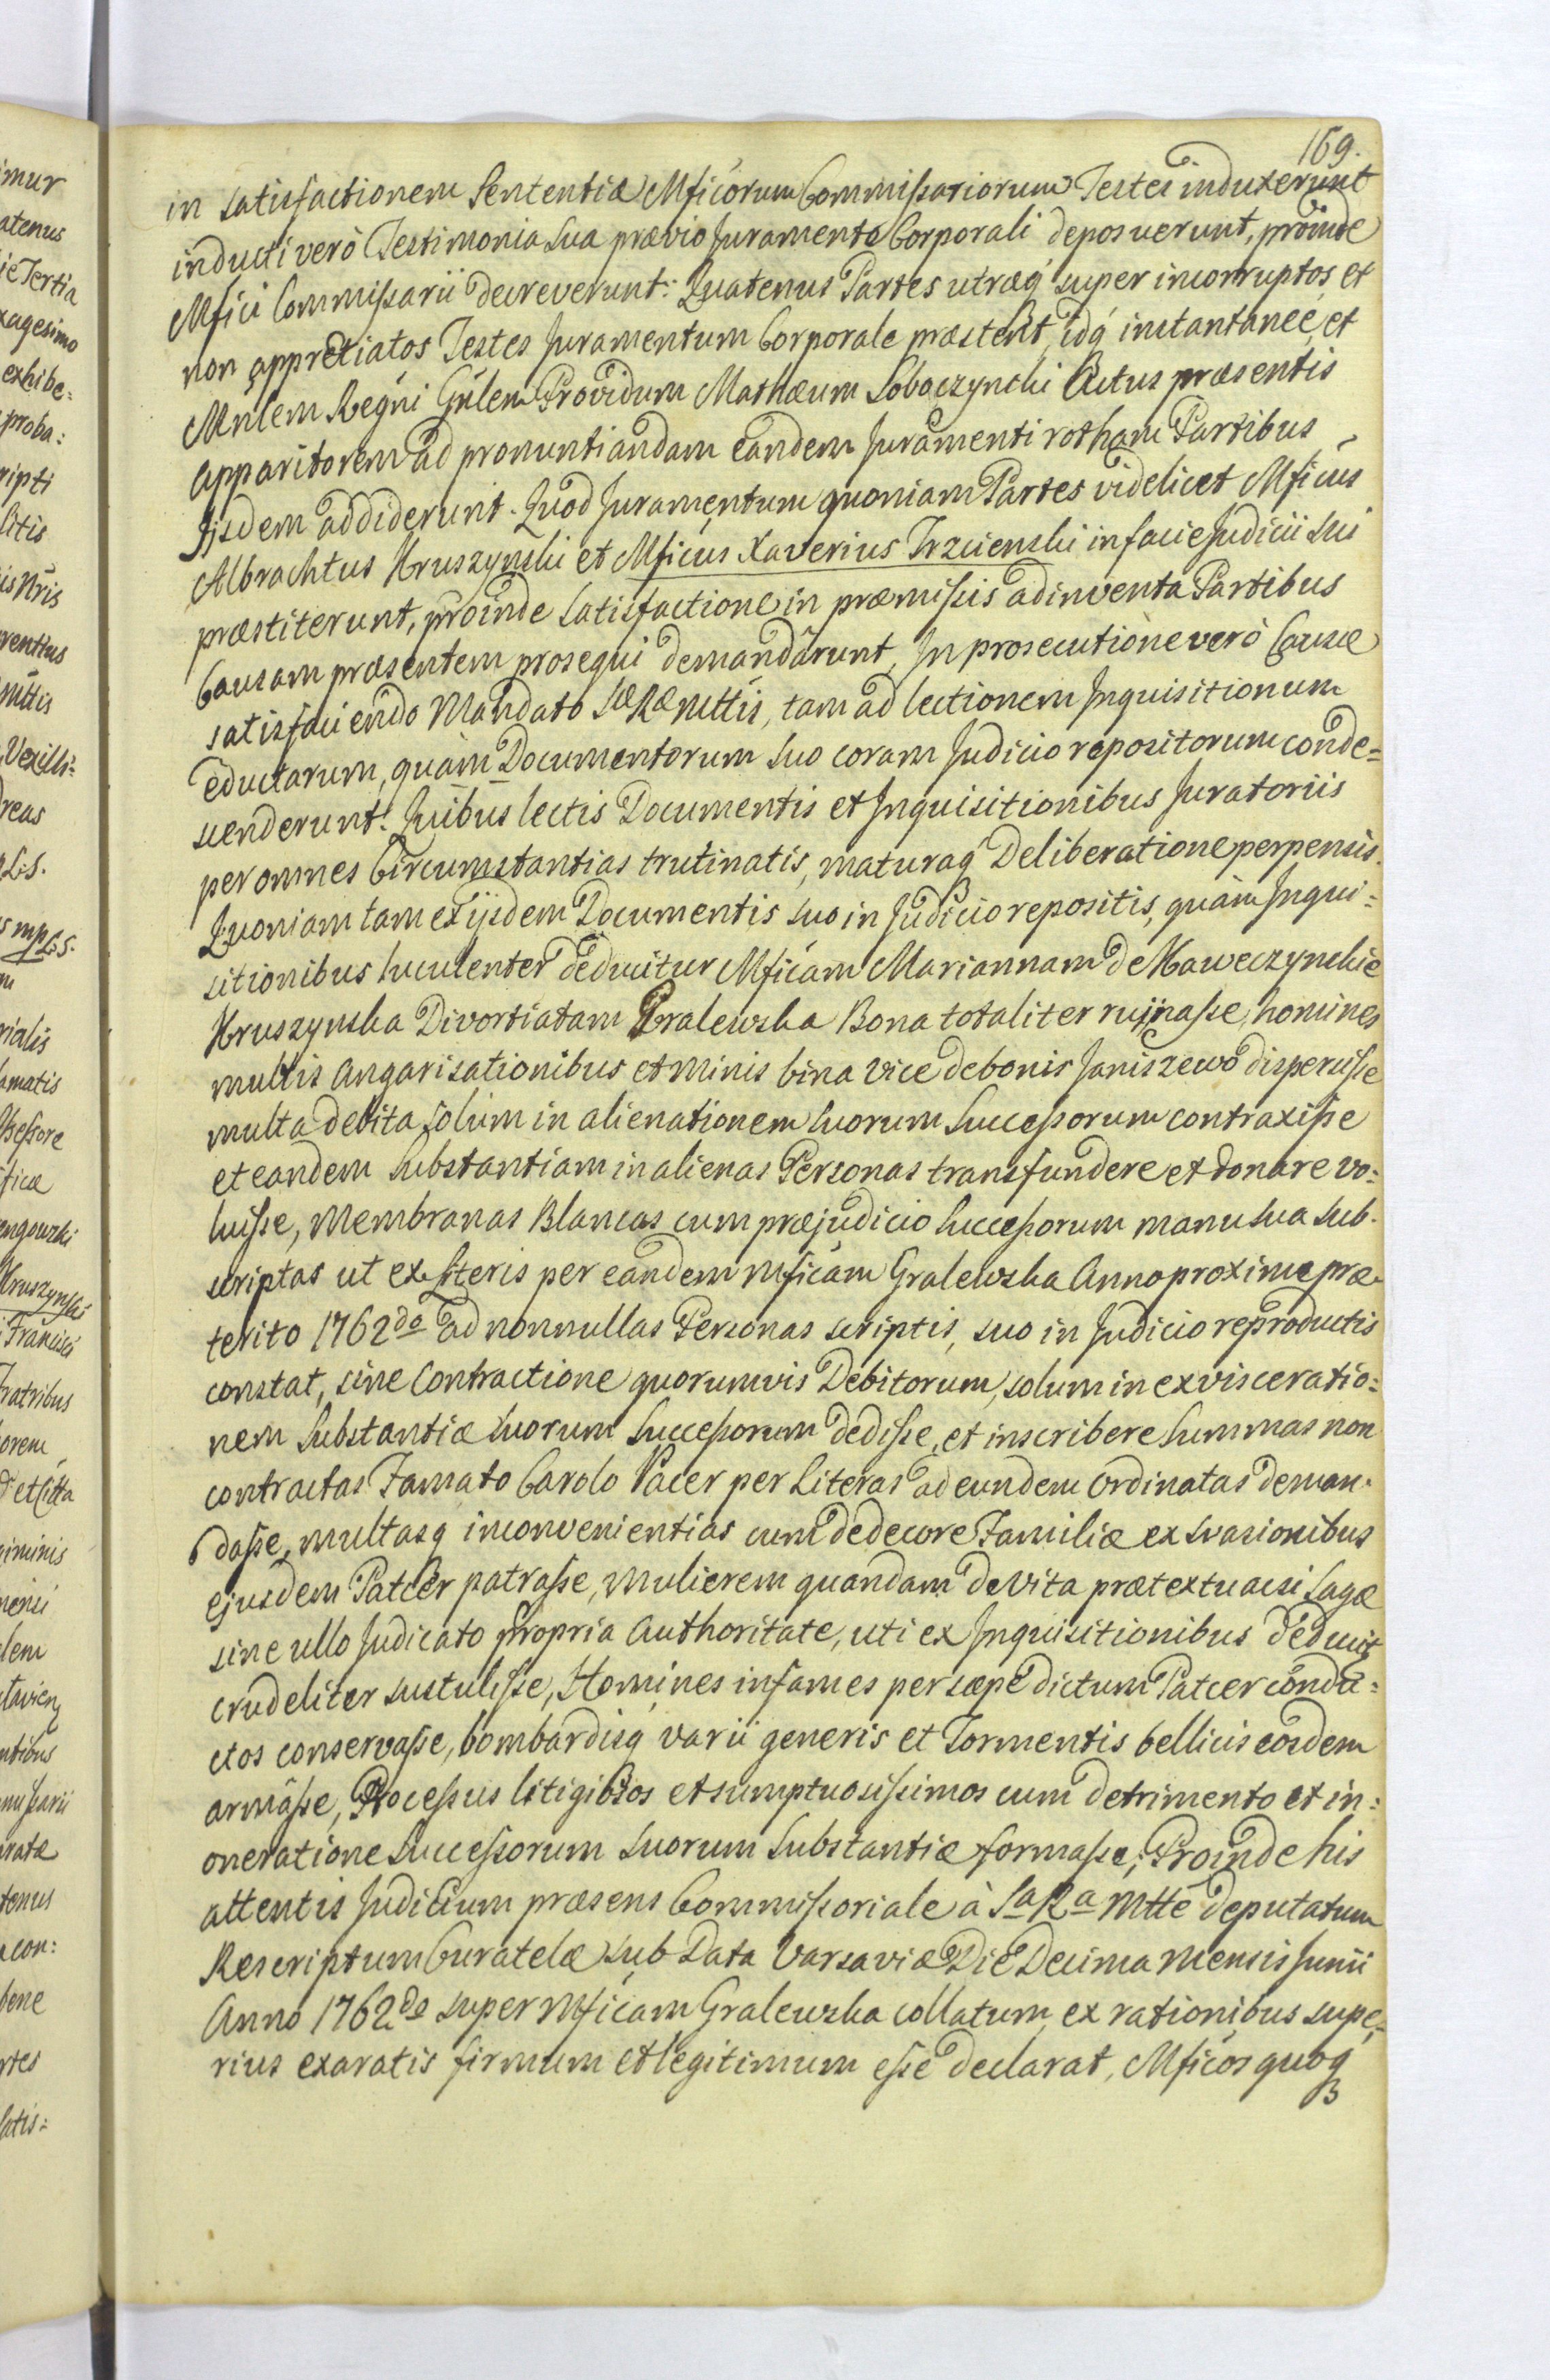 169.
in satisfactionem Sententiæ Mficorum Commissariorum Testes induxerunt
inducti verò Testimonia sua prævio Juramento Corporali deposuerunt, proinde
Mfici Commissarii decreverunt: Quatenus Partes utræq́ super incorruptos et
non appretiatos Testes Juramentum Corporale præstent, idq́ instantanee, et
Mnlem Regni Gnlem Providum Mathæum Soboczynski Actus præsentis
Apparitorem ad pronuntiandam eandem Juramenti rotham Partibus
Ijsdem addiderunt. Quod Juramentum quoniam Partes videlicet Mficus
Albrachtus Kruszynski et Mficus Xaverius Trzcienski in facie Judicii sui
præstiterunt, proinde satisfactione in præmissis adinventa Partibus
Causam præsentem prosequi demandârunt, In prosecutione verò Causæ
satisfaciendo Mandato Sæ Ræ Mttis, tam ad lectionem Inquisitionum
eductarum, quàm Documentorum suo coram Judicio repositorum conde=
scenderunt. Quibus lectis Documentis et Inquisitionibus Juratoriis
per omnes Circumstantias trutinatis, maturaq́ Deliberatione perpensis.
Quoniam tam ex ijsdem Documentis suo in Judicio repositis, quàm Inqui=
sitionibus luculenter deducitur Mficam Mariannam de Kaweczynskie
Kruszynska Divortiatam Gralewska Bona totaliter rujnasse, homines
multis Angarisationibus et Minis bina vice de bonis Janiszewo dispersisse
multa debita solùm in alienationem suorum Successorum contraxisse
et eandem Substantiam in alienas Personas transfundere et donare vo=
luisse, Membranas Blancas cum præjudicio Successorum manu sua sub.
scriptas ut ex Literis per eandem Mficam Gralewska Anno proxime præ
terito 1762do ad nonnullas Personas scriptis, suo in Judicio reproductis
constat, sine Contractione quorumvis Debitorum, solum in exvisceratio=
nem Substantiæ suorum Successorum dedisse, et inscribere Summas non
contractas Famato Carolo Pacer per Literas ad eundem Ordinatas deman.
dasse, multasq́ inconvenientias cum dedecore Familiæ ex svasionibus
ejusdem Patcer patrasse, Mulierem quandam de Vita prætextu acsi Sagæ
sine ullo Judicato propria Authoritate, uti ex Inquisitionibus deducit
crudeliter sustulisse, Homines infames per sæpe dictum Patcer condu=
ctos conservasse, bombardisq́ varii generis et Tormentis bellicis eosdem
armâsse, Processus litigiosos et sumptuosissimos cum detrimento et in=
oneratione Successorum suorum Substantiæ formasse; Proinde his
attentis Judicium præsens Commissoriale à Sa Ra Mtte deputatum
Rescriptum Curatelæ sub Data Varsaviæ Die Decima Mensis Junii
Anno 1762do super Mficam Gralewska collatum, ex rationibus supe=
rius exaratis firmum et legitimum esse declarat, Mficos quoq́